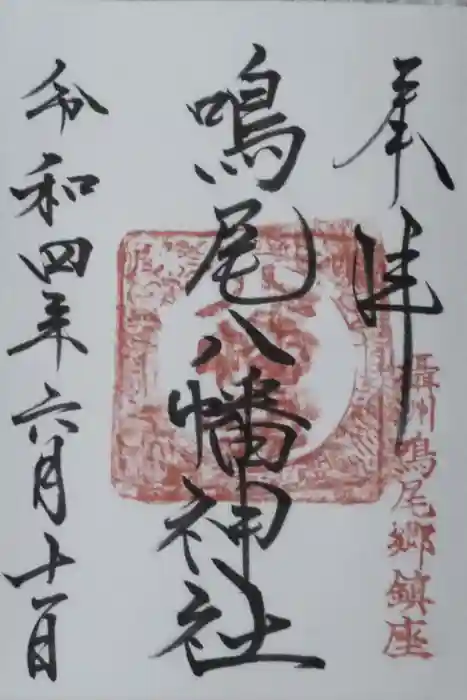 奉拝
摂州鳴尾郷鎮座
鳴尾八幡神社
令和四年六月十一日